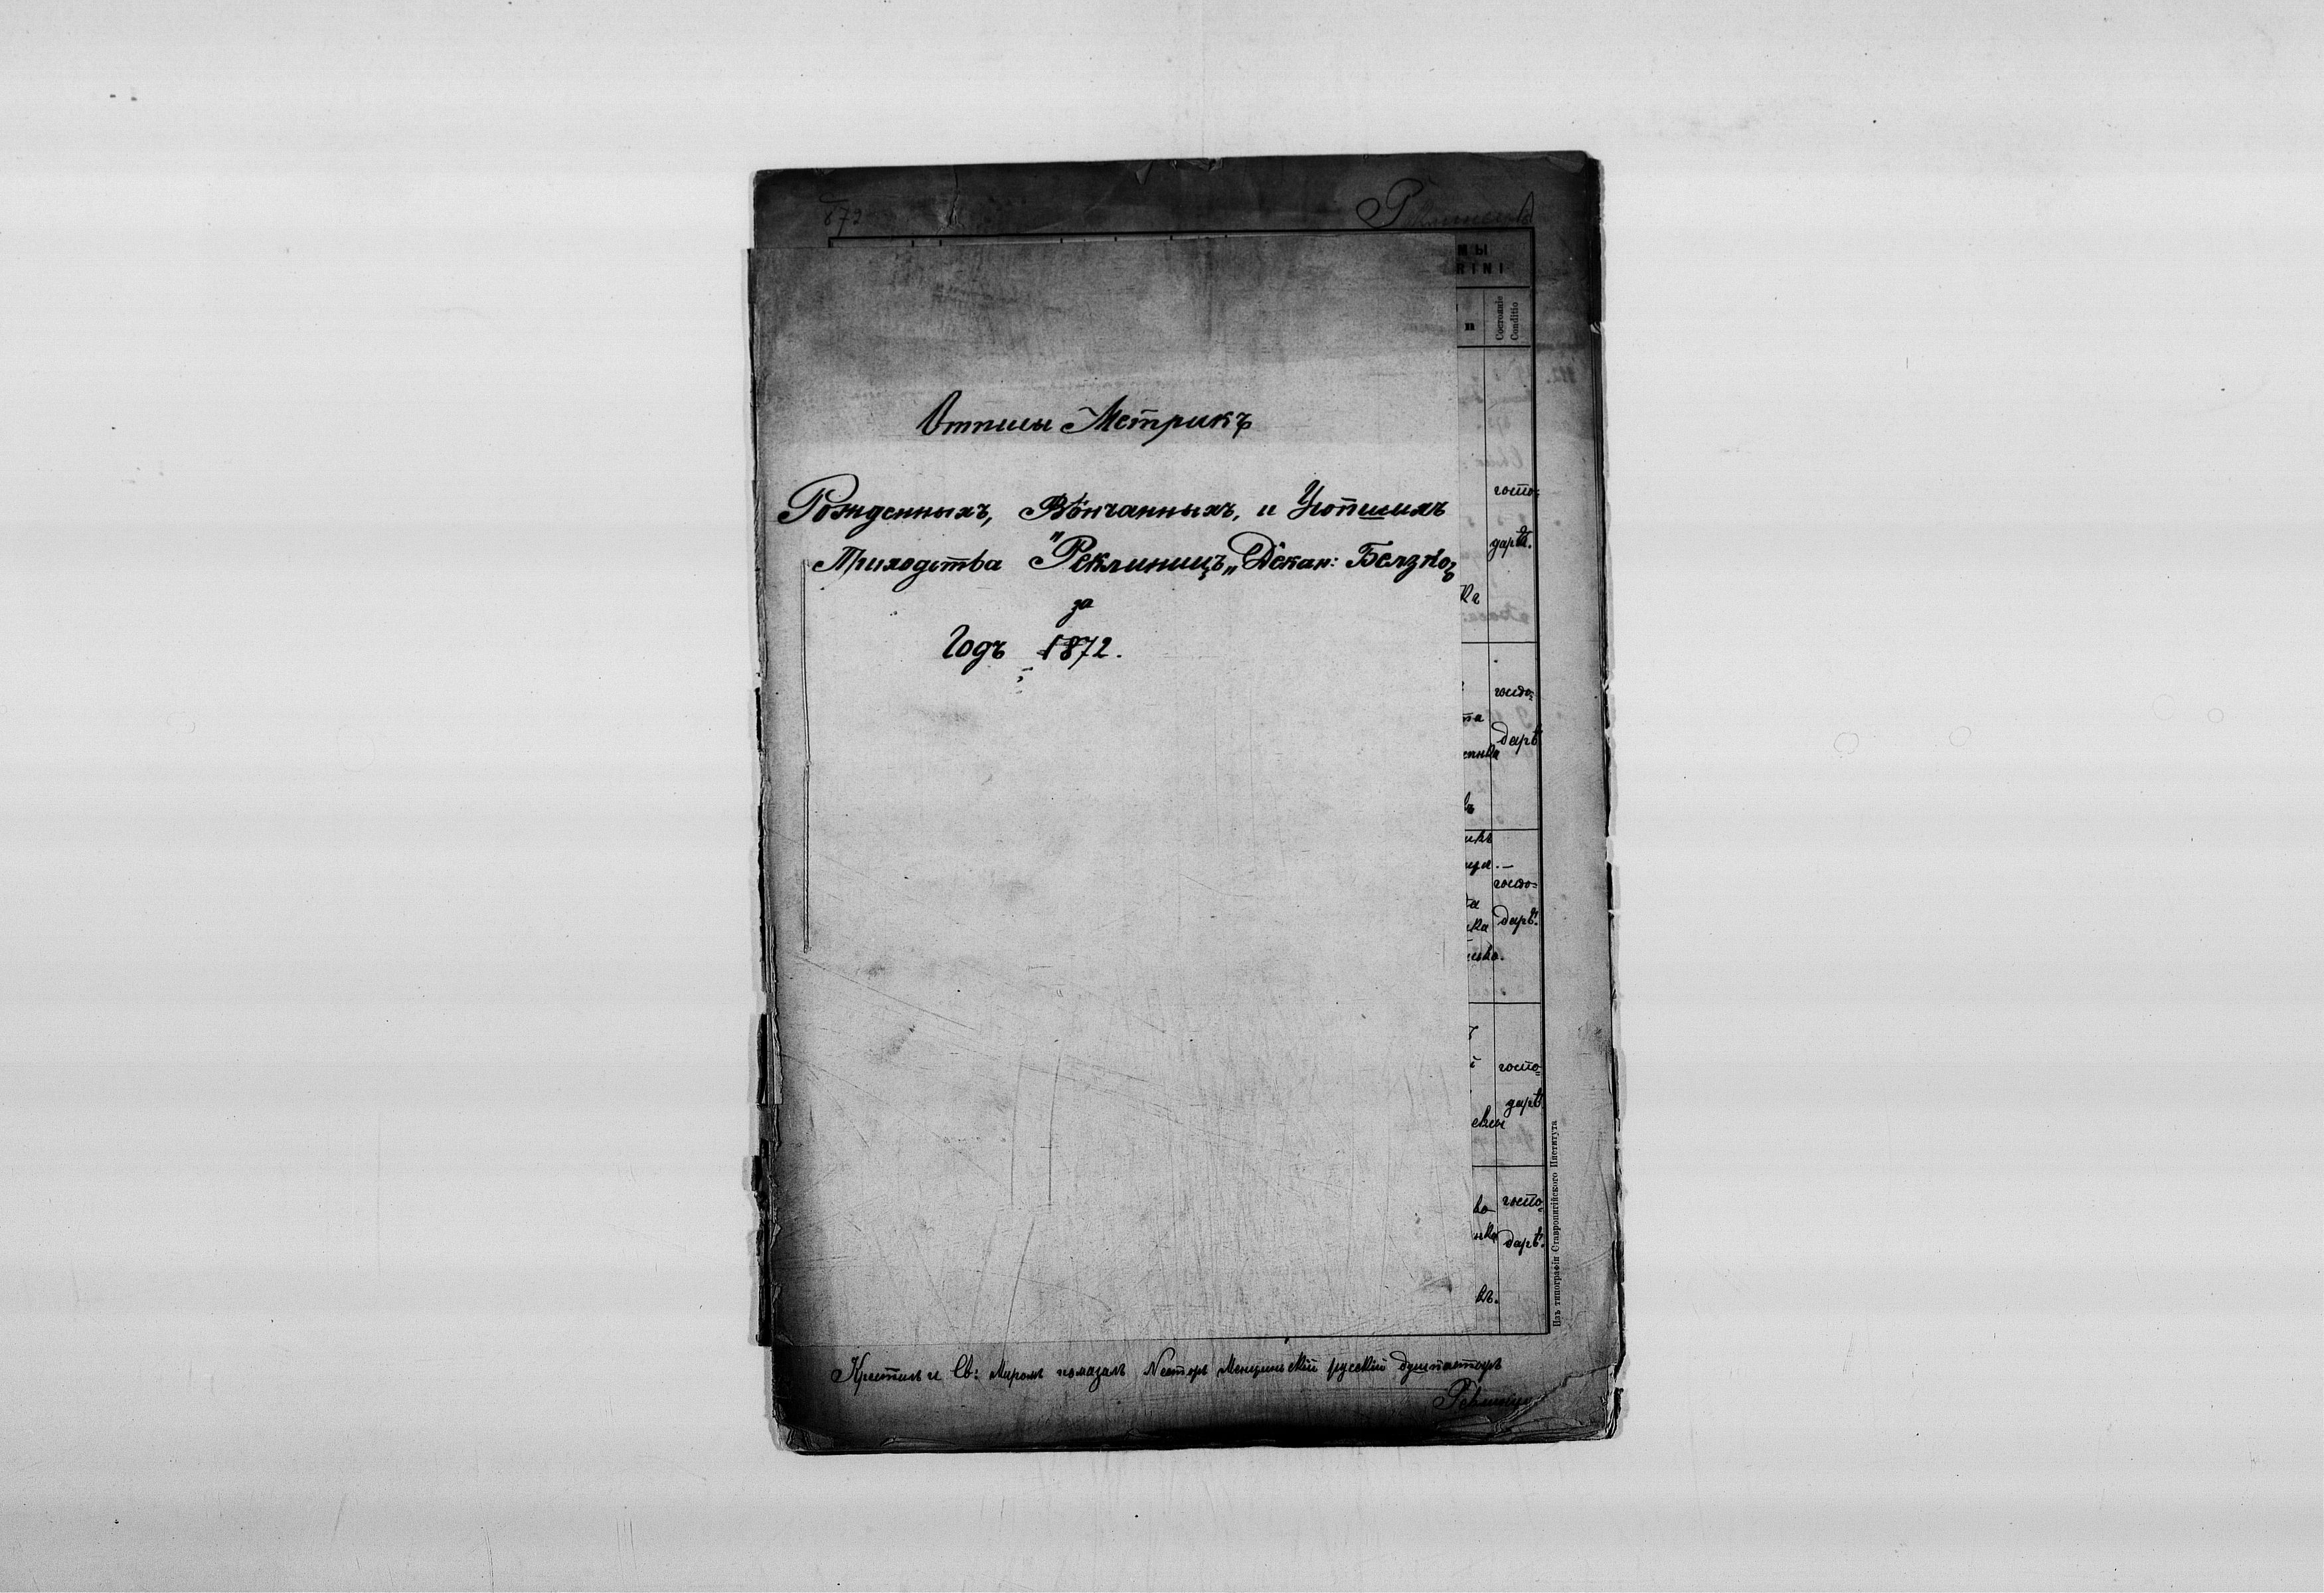 872
Отписы Метрикъ
Рожденныхъ, Вѣнчанныхъ, и Усопшихъ
Приходства "Реклинецъ„ Декан: Белзкого
за
Годъ 1872.
МЫ
RINI
Состояніе
Conditio
госпо-
дарѣ.
госпо-
дарѣ
госпо-
дарѣ.
госпо-
дарѣ
госпо-
дарѣ.
Изъ типографіи Ставропигійского Института
Крестилъ и Св: Миромъ помазалъ Несторъ русскій душпастырь